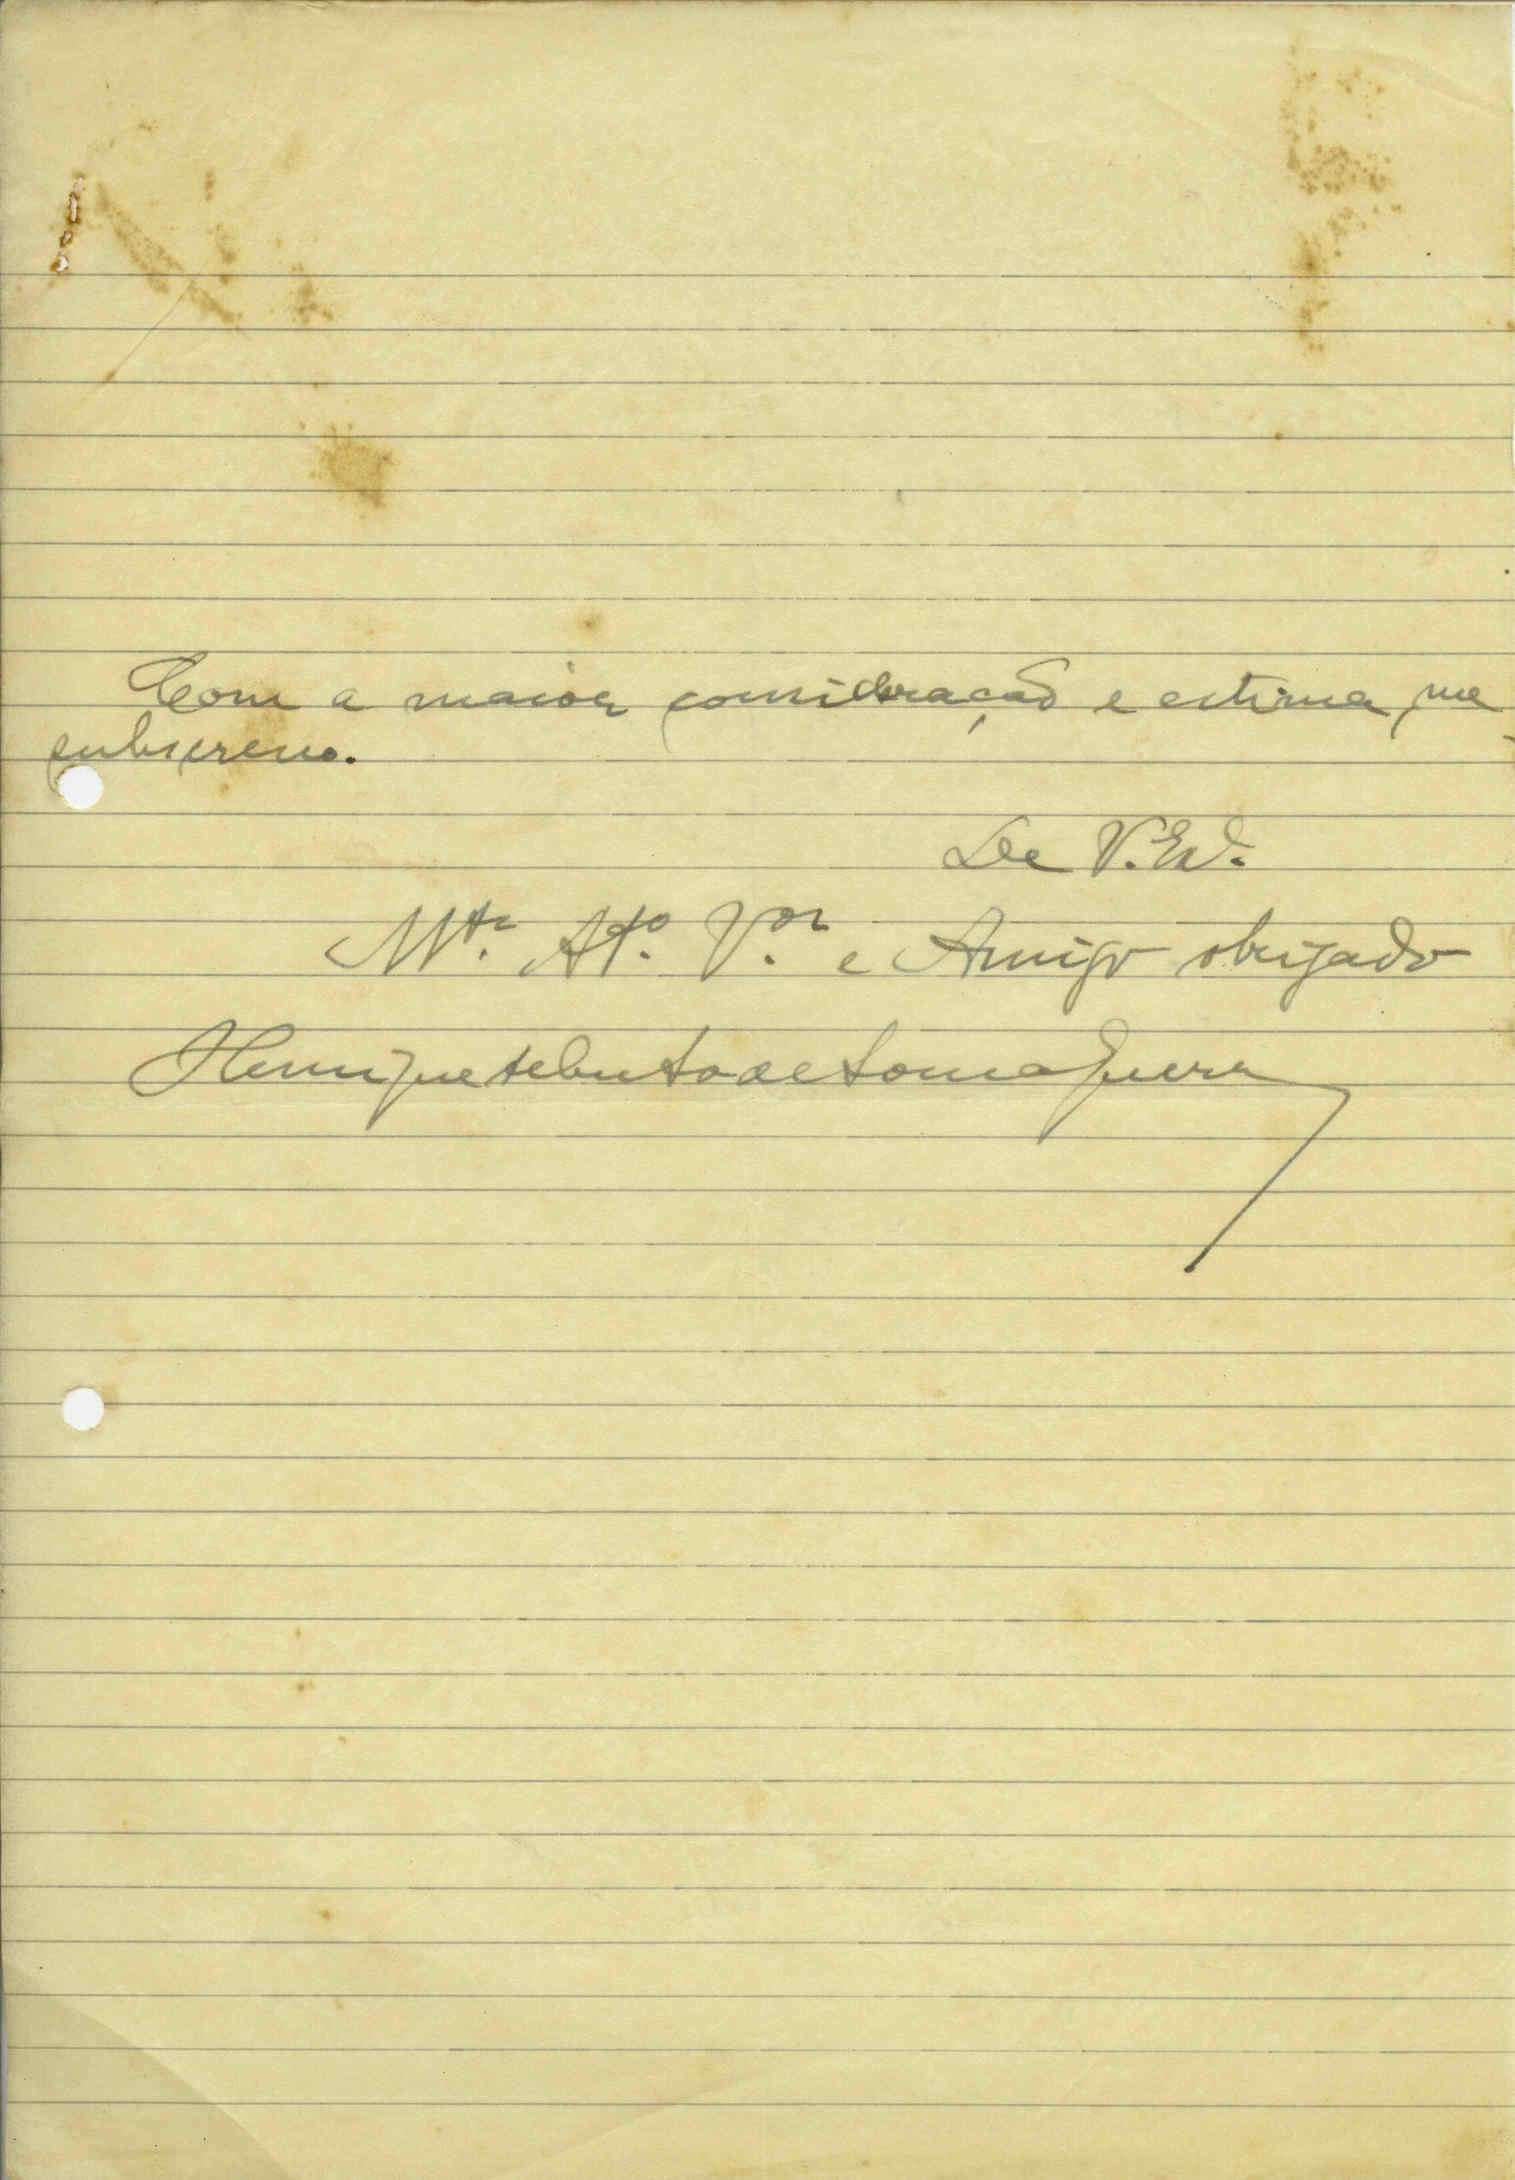 Com a maior consideração e estima, me
subscrevo.
De V. Ex.ª
Mto. Atº. V.or e Amigo obrigado
Henrique de Sousa Guerra